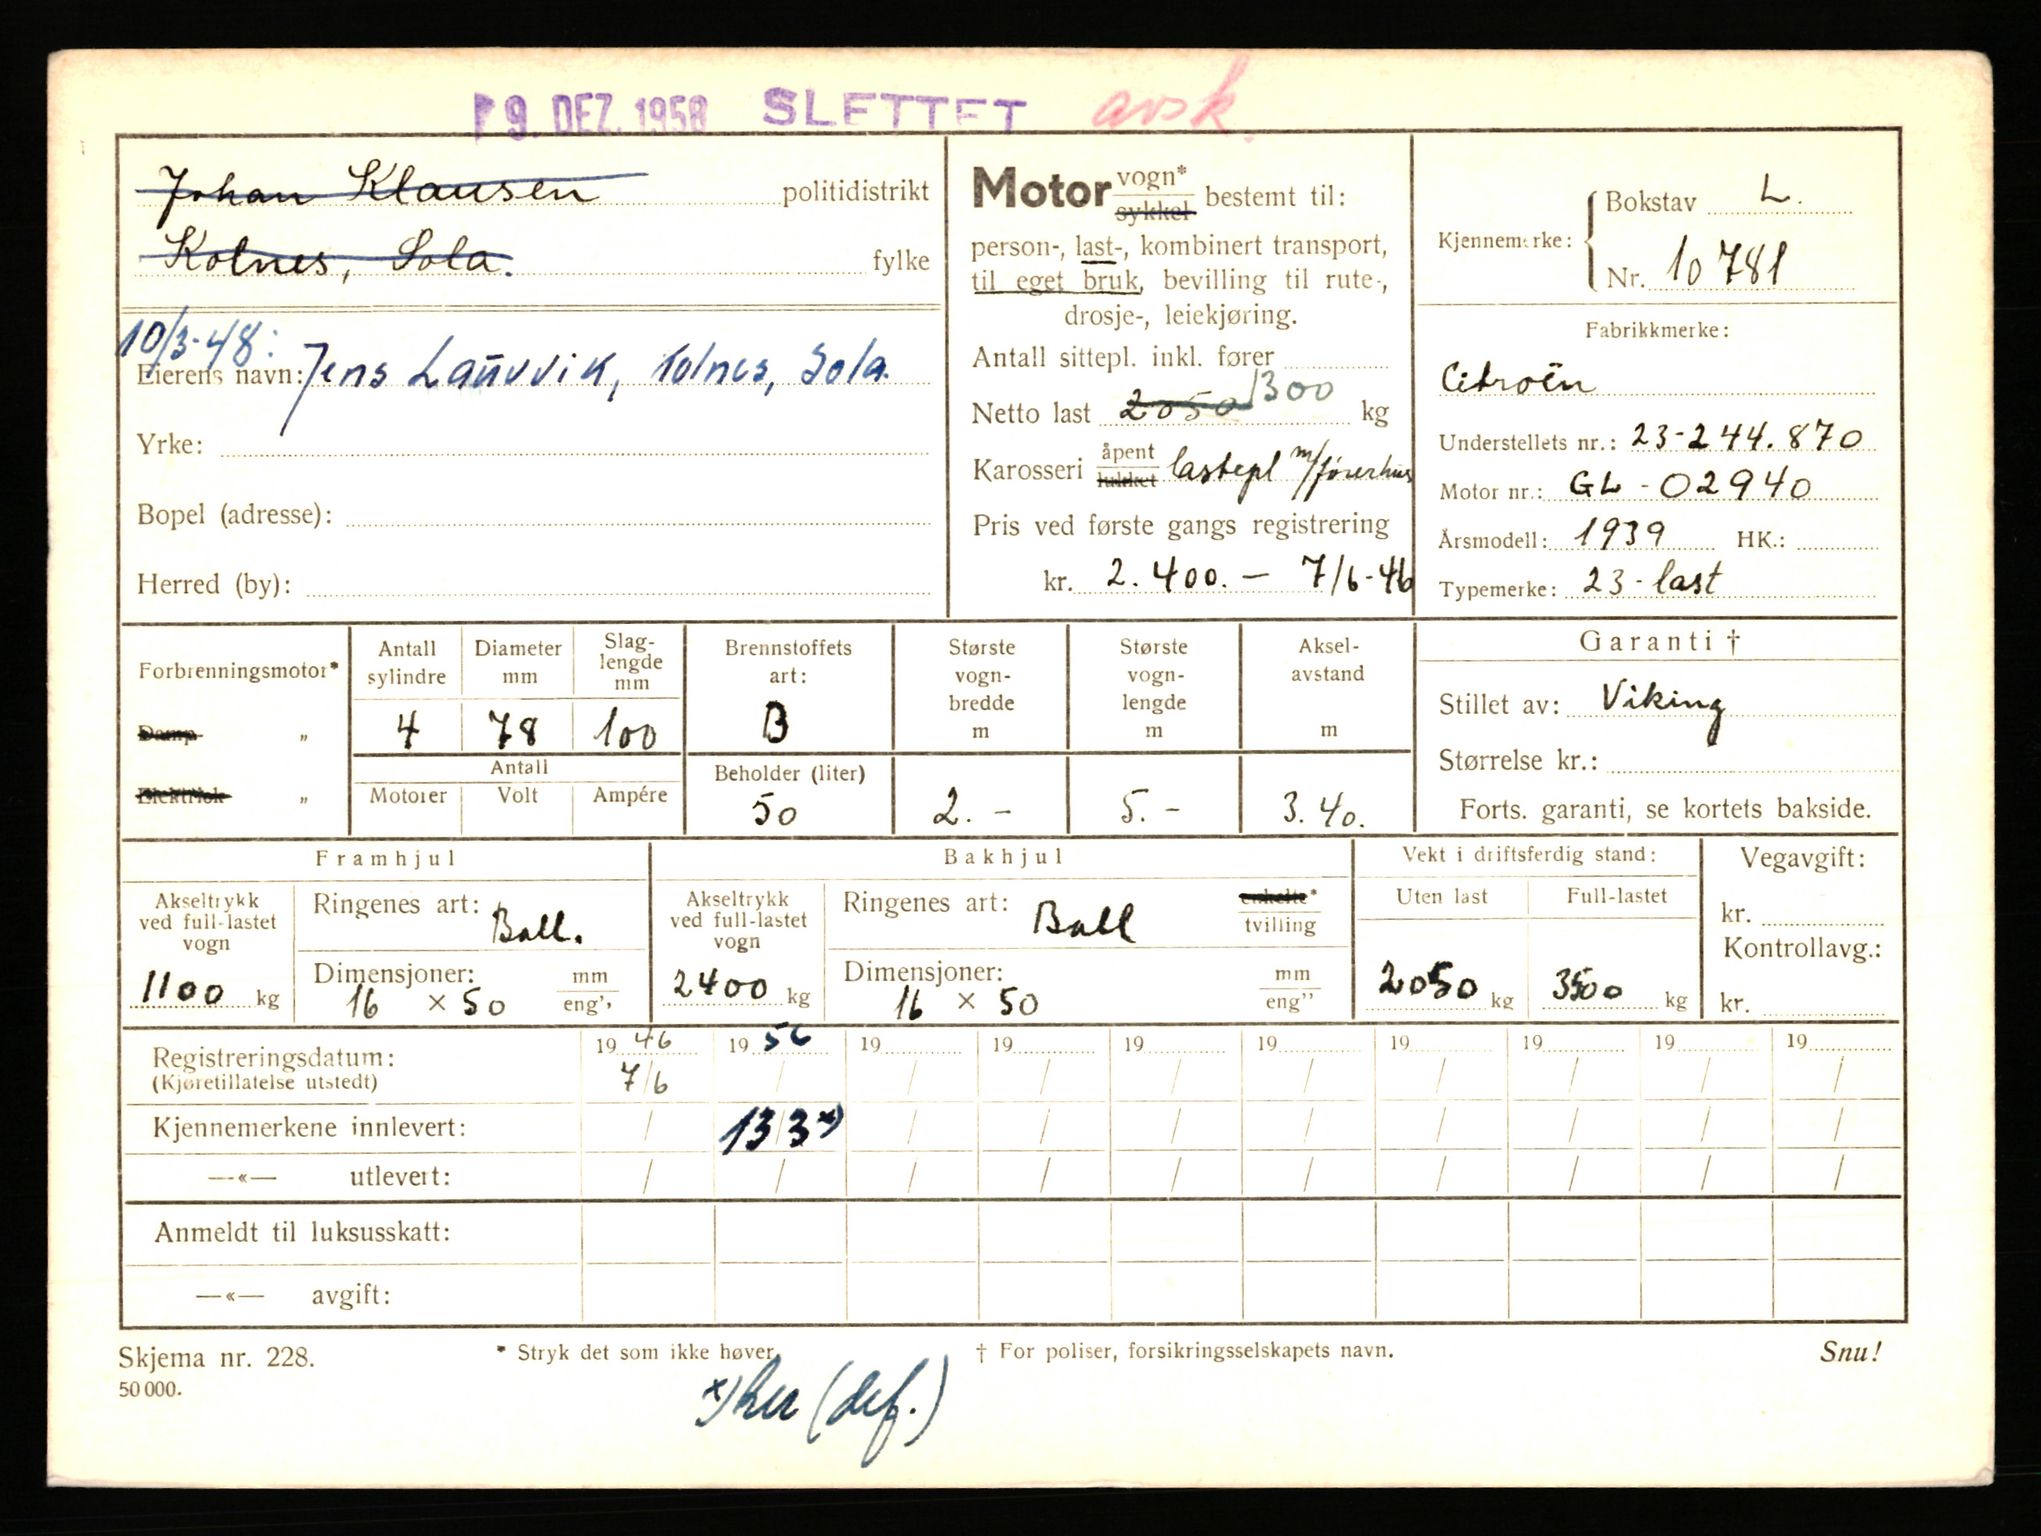 9. DEZ. 1958 SLETTET avsk.
Johan Klausen politidistrikt
Kolnes, Sola. fylke
10/3-48:
Eierens navn: Jens Lauvvik, Tolnes, Sola.
Yrke:
Bopel (adresse):
Herred (by):
Motor vogn* sykkel bestemt til:
person-, last-, kombinert transport,
til eget bruk, bevilling til rute-,
drosje-, leiekjøring.
Antall sittepl. inkl. fører
Netto last 2050 1300 kg
Karosseri åpent lukket lastepl m/førerhus
Pris ved første gangs registrering
kr. 2.400.— 7/6-46
Kjennemerke: Bokstav L.
Nr. 10781
Fabrikkmerke:
Citroën
Understellets nr.: 23-244.870
Motor nr.: GL-02940
Årsmodell: 1939 HK.:
Typemerke: 23-last
Forbrenningsmotor*
Damp „
Elektrisk „
Antall sylindre
Diameter mm
Slag-lengde mm
4 78 100
Antall
Motorer Volt Ampére
Brennstoffets art:
B
Beholder (liter)
50
Største vogn-bredde m
2.-
Største vogn-lengde m
5.-
Aksel-avstand m
3.40.
Garanti †
Stillet av: Viking
Størrelse kr.:
Forts. garanti, se kortets bakside.
Framhjul
Akseltrykk ved full-lastet vogn
1100 kg
Ringenes art: Ball.
Dimensjoner: mm
16 × 50 eng''
Bakhjul
Akseltrykk ved full-lastet vogn
2400 kg
Ringenes art: Ball enkelte* tvilling
Dimensjoner: mm
16 × 50 eng''
Vekt i driftsferdig stand:
Uten last Full-lastet
2050 kg 3500 kg
Vegavgift:
kr.
Kontrollavg.:
kr.
Registreringsdatum: 19 46 19 56 19 19 19 19 19 19 19 19
(Kjøretillatelse utstedt) 7/6 / / / / / / / / /
Kjennemerkene innlevert: / 13/3 x) / / / / / / / /
—«— utlevert: / / / / / / / / / /
Anmeldt til luksusskatt:
—«— avgift:
Skjema nr. 228. * Stryk det som ikke høver. † For poliser, forsikringsselskapets navn. Snu!
50 000.
x) her (def.)